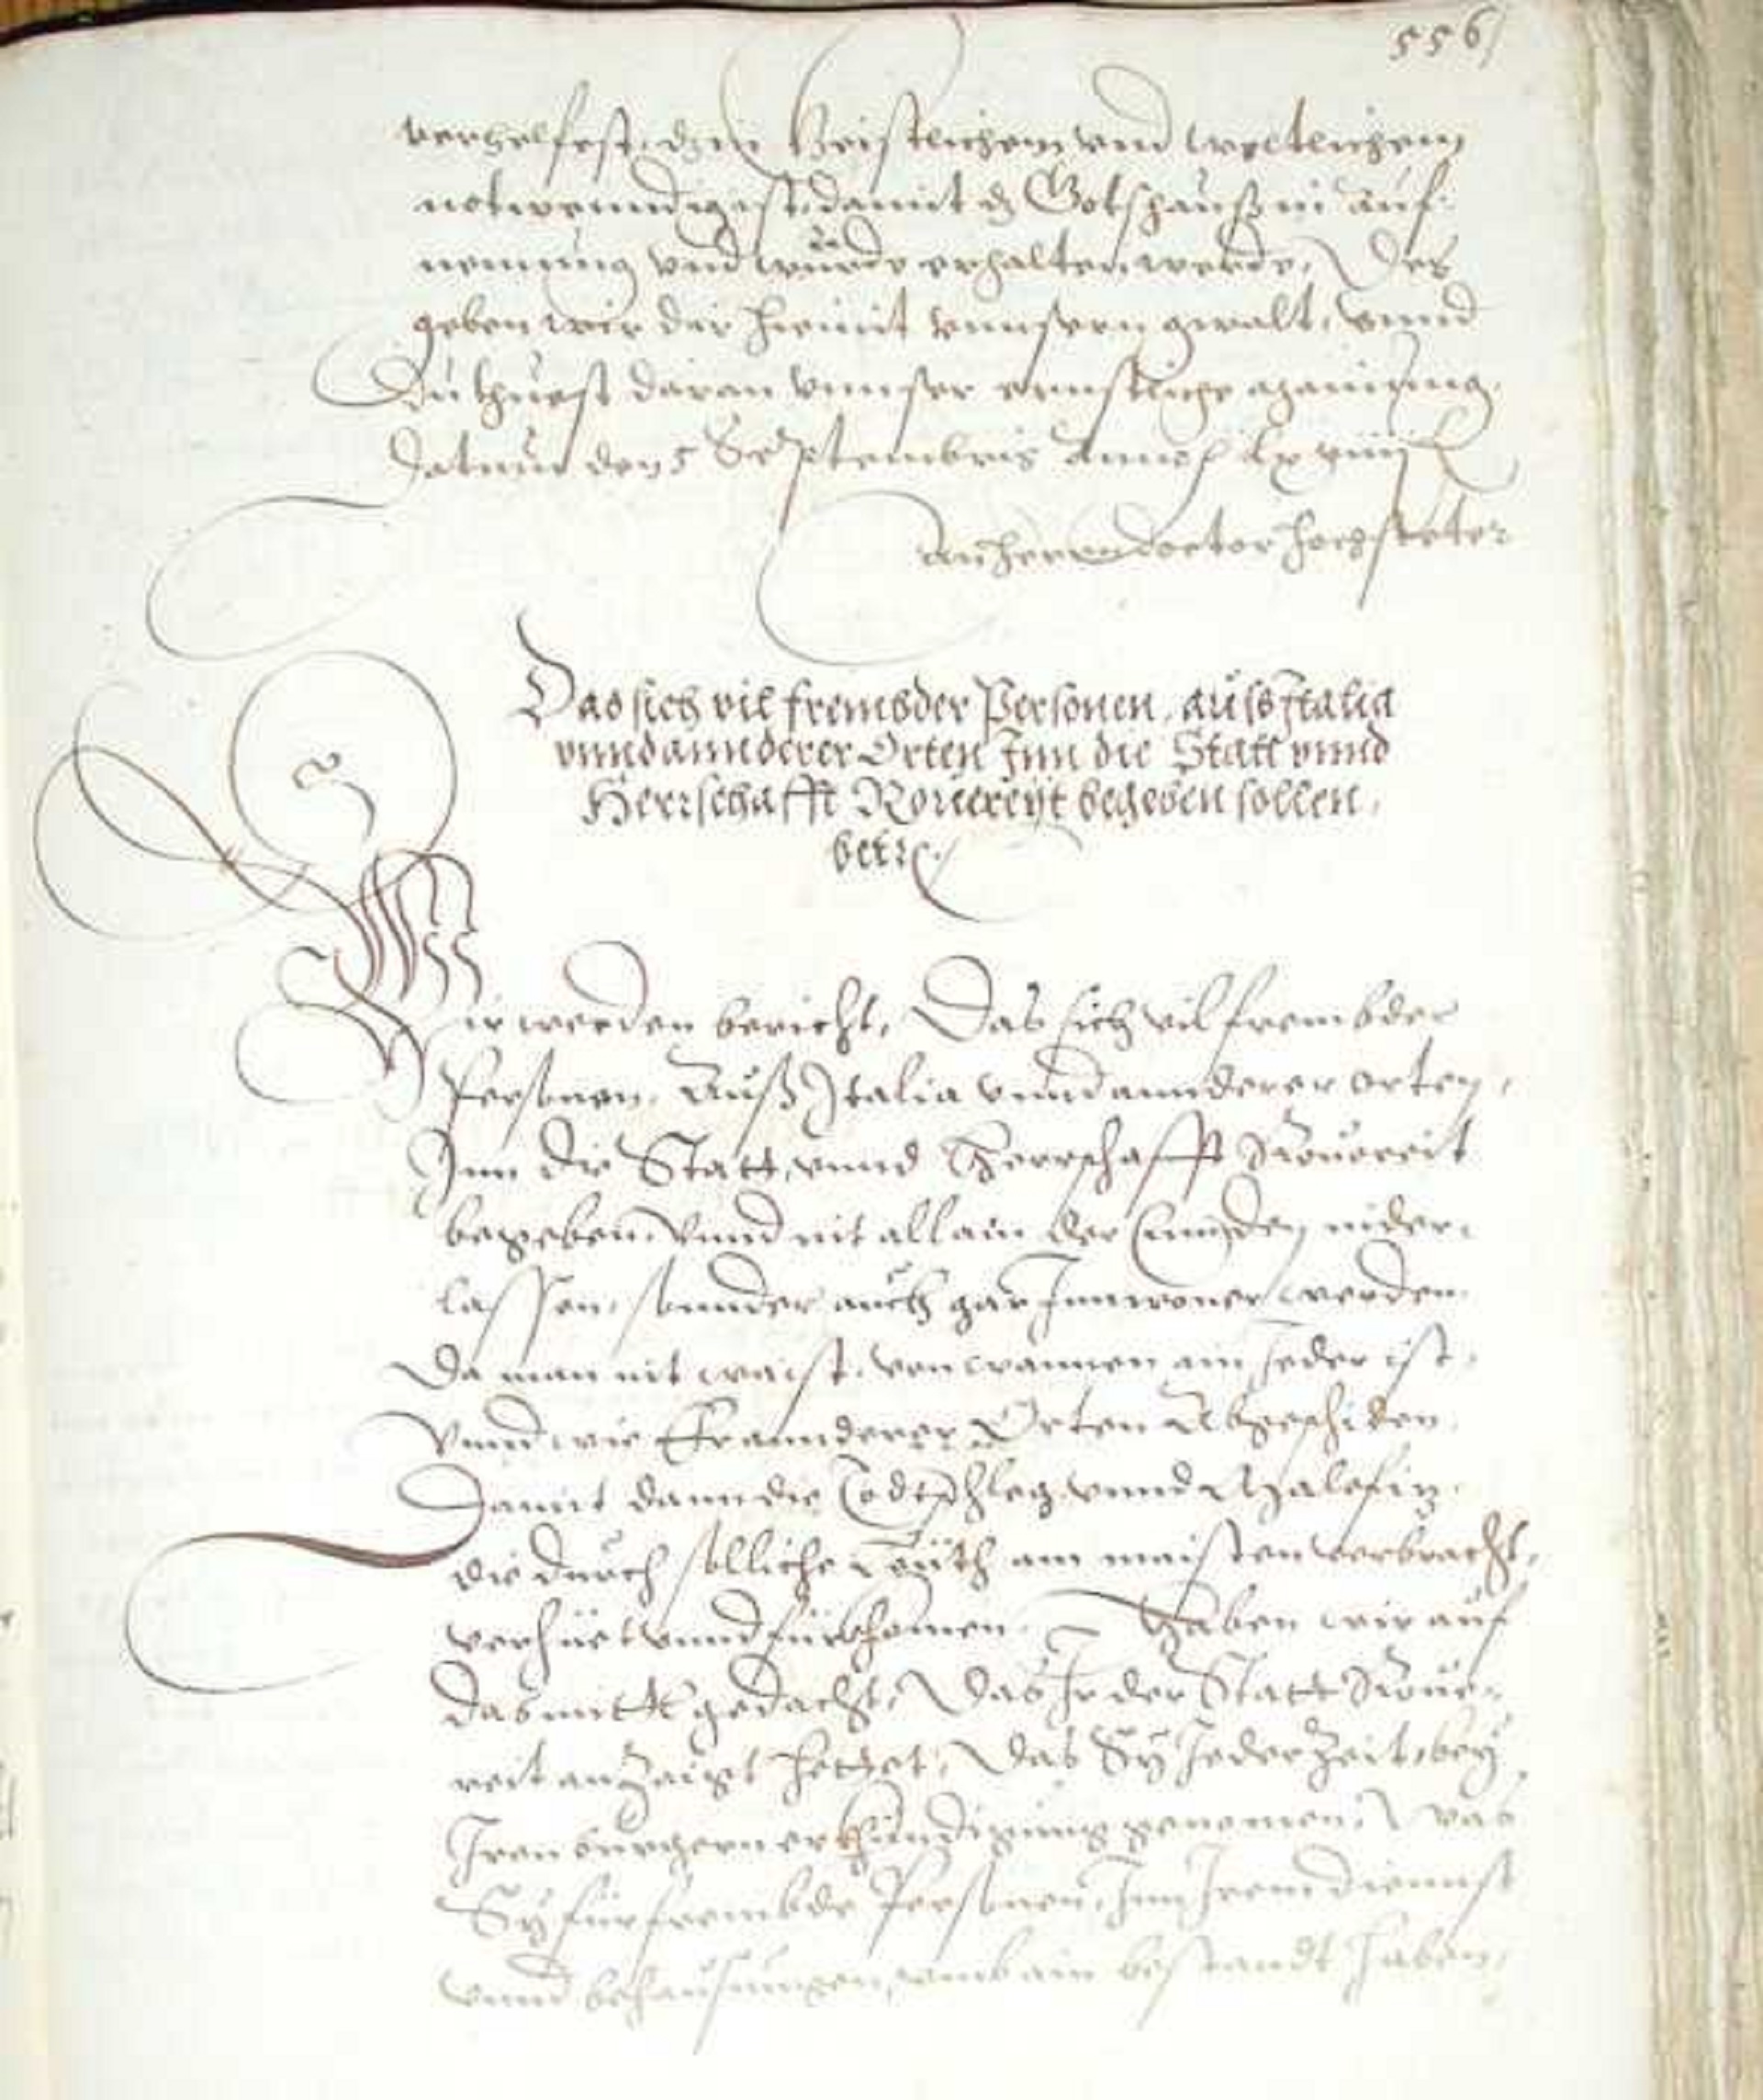 556
verhelfest, dem Geistlichem und Weltlichem
notwenndig ist, damit dz Gotshauß in auf-
nemung und würde erhalten werde, Des
geben wir dir hiemit unnsern gwalt, unnd
Du thuest daran unnser ernstliche mainung,
Datum den 5 Septembris Anno lxviiii
An herrn doctor Hochsteter
Das sich vil frembder Personen, auß Italia
unnd annderer Orten Inn die Statt unnd
Herrschafft Rovereyt begeben sollen,
betr.
Wir werden bericht, Das sich vil frembder
Personen, Auß Italia unnd annderer orten,
Inn die Statt, unnd Herrschafft Rovereit
begeben, Unnd nit allain der Ennden nider-
lassen, sonnder auch gar Innwoner werden
Da man nit waist, von wannen ain Jeder ist,
Unnd wie Er annderer Orten Abgeschiden
Damit dann die Todtschleg unnd Malefiz,
die durch solliche Leuth am maisten verbracht,
verhüet unnd fürkhomen, Haben wir auf
das mittl gedacht, Das Ir der Statt Rove-
reit anzaigt hettet, Das Sy Jeder Zeit, bey
Iren burgern erkhundigung genomen, Was
Sy für frembde Personen, Inn Irem diennst
unnd behausungen, umb ain bestandt haben,